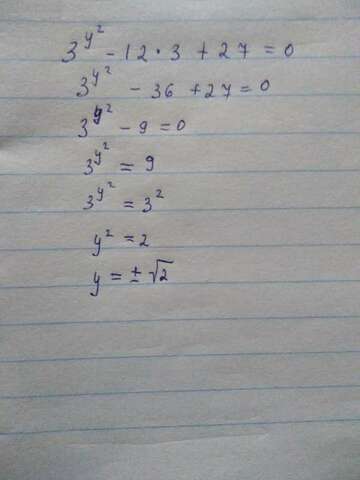 3^{y^2} - 12 · 3 + 27 = 0
3^{y^2} - 36 + 27 = 0
3^{y^2} - 9 = 0
3^{y^2} = 9
3^{y^2} = 3^2
y^2 = 2
y = ± √2